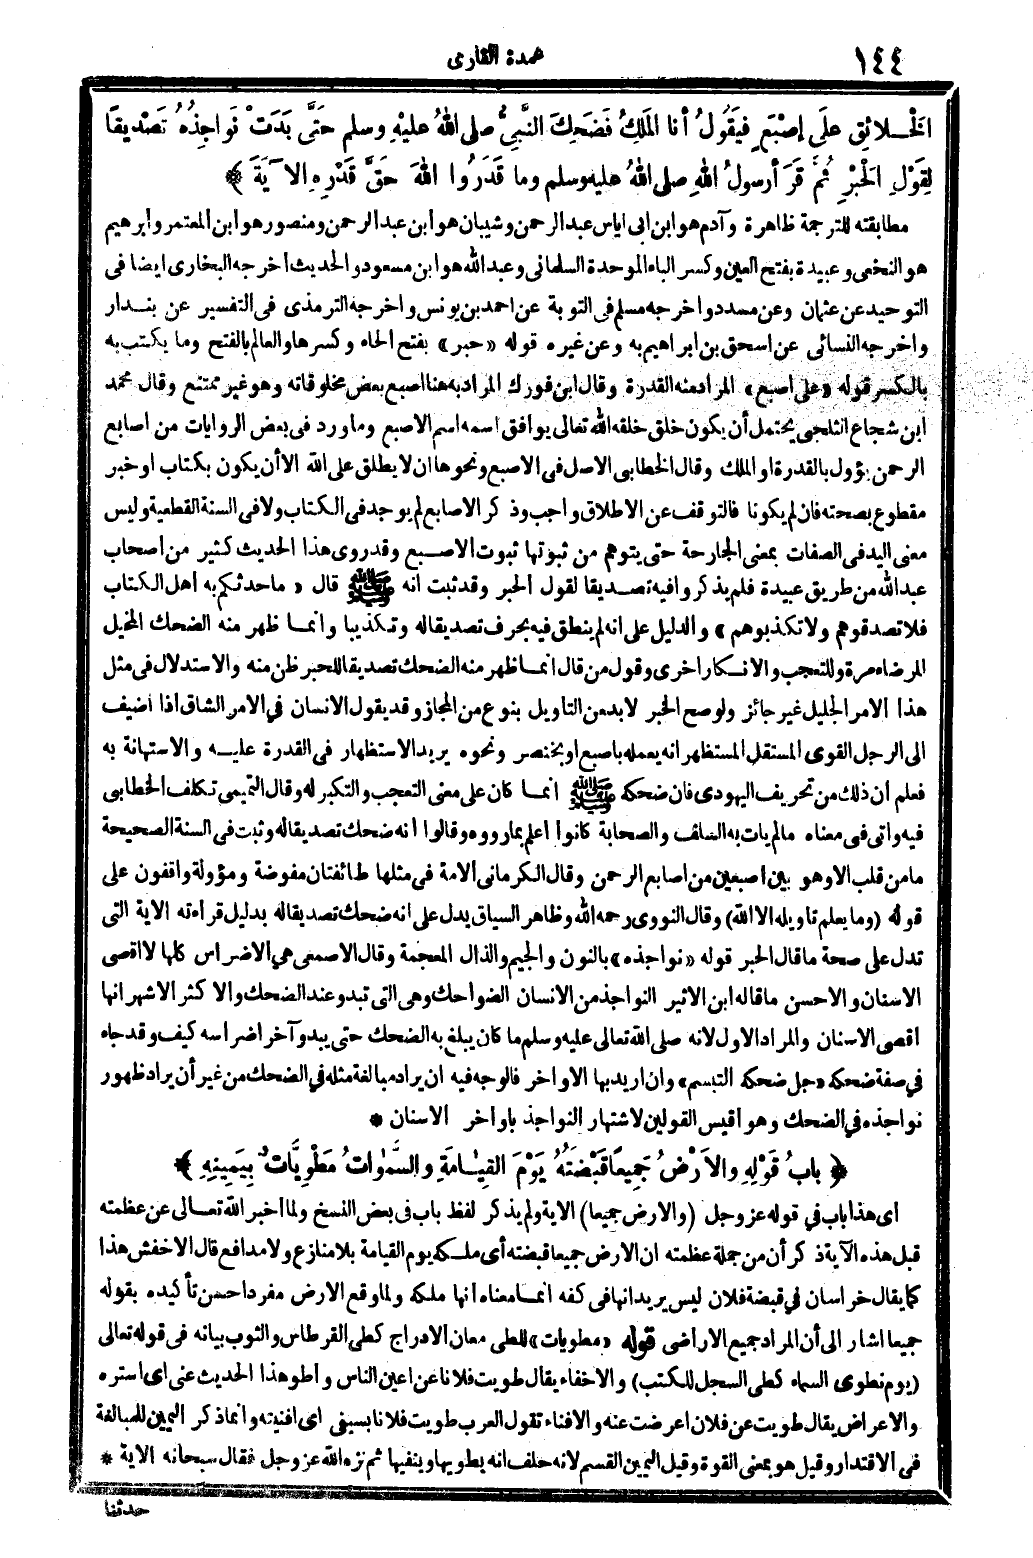 ١٤٤
عمدة القارى
الْخَلائِقِ عَلَى إِصْبَعٍ فَيَقُولُ أَنا المَلِكُ فَضَحِكَ النَّبِيُّ صلى اللهُ عليْهِ وسلم حَتَّى بَدَتْ نَواجِذُهُ تَصْدِيقاً
لِقَوْلِ الْحَبْرِ ثُمَّ قَرَأَ رسولُ اللهِ صلى اللهُ عليه وسلم وما قَدَرُوا اللهَ حَقَّ قَدْرِهِ الآيَةَ ﴾
مطابقته للترجمة ظاهرة وآدم هو ابن ابى اياس عبد الرحمن وشيبان هو ابن عبد الرحمن ومنصور هو ابن المعتمر وابرهيم
هو النخعى وعبيدة بفتح العين وكسر الباء الموحدة السلمانى وعبد الله هو ابن مسعود والحديث اخرجه البخارى ايضا فى
التوحيد عن عثمان وعن مسدد واخرجه مسلم فى التوبة عن احمد بن يونس واخرجه الترمذى فى التفسير عن بندار
واخرجه النسائى عن اسحق بن ابراهيم به وعن غيره قوله «حبر» بفتح الحاء وكسرها والعالم بالفتح وما يكتب به
بالكسر قوله «على اصبع» المراد منه القدرة وقال ابن فورك المراد به هنا اصبع بعض مخلوقاته وهو غير ممتنع وقال محمد
ابن شجاع الثلجى يحتمل أن يكون خلق خلقه الله تعالى يوافق اسمه اسم الاصبع وما ورد فى بعض الروايات من اصابع
الرحمن يؤول بالقدرة او الملك وقال الخطابى الاصل فى الاصبع ونحوها ان لا يطلق على الله الا أن يكون بكتاب او خبر
مقطوع بصحته فان لم يكونا فالتوقف عن الاطلاق واجب وذكر الاصابع لم يوجد فى الكتاب ولا فى السنة القطعية وليس
معنى اليد فى الصفات بمعنى الجارحة حتى يتوهم من ثبوتها ثبوت الاصبع وقد روى هذا الحديث كثير من أصحاب
عبد الله من طريق عبيدة فلم يذكروا فيه تصديقا لقول الحبر وقد ثبت انه ﷺ قال « ما حدثكم به أهل الكتاب
فلا تصدقوهم ولا تكذبوهم » والدليل على انه لم ينطق فيه بحرف تصديقا له وتكذيبا وانما ظهر منه الضحك المخيل
المرضاة مرة وللتعجب والانكار اخرى وقول من قال انما ظهر منه الضحك تصديقا للحبر ظن منه والاستدلال فى مثل
هذا الامر الجليل غير جائز ولو صح الخبر لابد من التاويل بنوع من المجاز وقد يقول الانسان في الامر الشاق اذا اضيف
الى الرجل القوى المستقل المستظهر انه يعمله باصبع او بخنصر ونحوه يريد الاستظهار فى القدرة عليه والاستهانة به
فعلم أن ذلك من تحريف اليهودى فان ضحكه ﷺ انما كان على معنى التعجب والتكبر له وقال التميمى تكلف الخطابى
فيه واتى فى معناه مالم يات به السلف والصحابة كانوا اعلم بمارووه وقالوا انه ضحك تصديقا له وثبت فى السنة الصحيحة
ما من قلب الا وهو بين اصبعين من اصابع الرحمن وقال الكرمانى الامة فى مثلها طائفتان مفوضة ومؤولة واقفون على
قوله (وما يعلم تاويله الا الله) وقال النووى رحمه الله وظاهر السياق يدل على انه ضحك تصديقا له بدليل قراءته الاية التى
تدل على صحة ما قال الحبر قوله «نواجذه» بالنون والجيم والذال المعجمة وقال الاصمعى هي الاضراس كلها لا اقصى
الاسنان والاحسن ما قاله ابن الاثير النواجذ من الانسان الضواحك وهى التى تبدو عند الضحك والاكثر الاشهر انها
اقصى الاسنان والمراد الاول لانه صلى الله تعالى عليه وسلم ما كان يبلغ به الضحك حتى يبدو آخر اضراسه كيف وقد جاء
فى صفة ضحكه «جل ضحكه التبسم» وان اريد بها الاواخر فالوجه فيه ان يراد مبالغة مثله في الضحك من غير أن يراد ظهور
نواجذه في الضحك وهو أقيس القولين لاشتهار النواجذ باواخر الاسنان *
﴿ بابُ قَوْلِهِ والأَرْضُ جَمِيعاً قَبْضَتُهُ يَوْمَ القِيامَةِ والسَّمٰوَاتُ مَطْوِيَّاتٌ بِيَمِينِهِ ﴾
اى هذا باب في قوله عز وجل (والارض جميعا) الاية ولم يذكر لفظ باب فى بعض النسخ ولما اخبر الله تعالى عن عظمته
قبل هذه الآية ذكر أن من جملة عظمته ان الارض جميعا قبضته أى ملكه يوم القيامة بلا منازع ولا مدافع قال الاخفش هذا
كما يقال خراسان في قبضة فلان ليس يريد انها فى كفه انما معناه انها ملكه ولما وقع الارض مفردا حسن تأكيده بقوله
جميعا اشار الى أن المراد جميع الاراضى قوله «مطويات» للطى معان الادراج كطى القرطاس والثوب بيانه فى قوله تعالى
(يوم نطوى السماء كطى السجل للكتب) والاخفاء يقال طويت فلانا عن اعين الناس واطو هذا الحديث عنى اى استره
والاعراض يقال طويت عن فلان اعرضت عنه والافناء تقول العرب طويت فلانا بسيفى اى افنيته وانما ذكر اليمين للمبالغة
فى الاقتدار وقيل هو بمعنى القوة وقيل اليمين القسم لانه حلف انه يطويها ويفنيها ثم نزه الله عز وجل فقال سبحانه الاية *
حدثنا